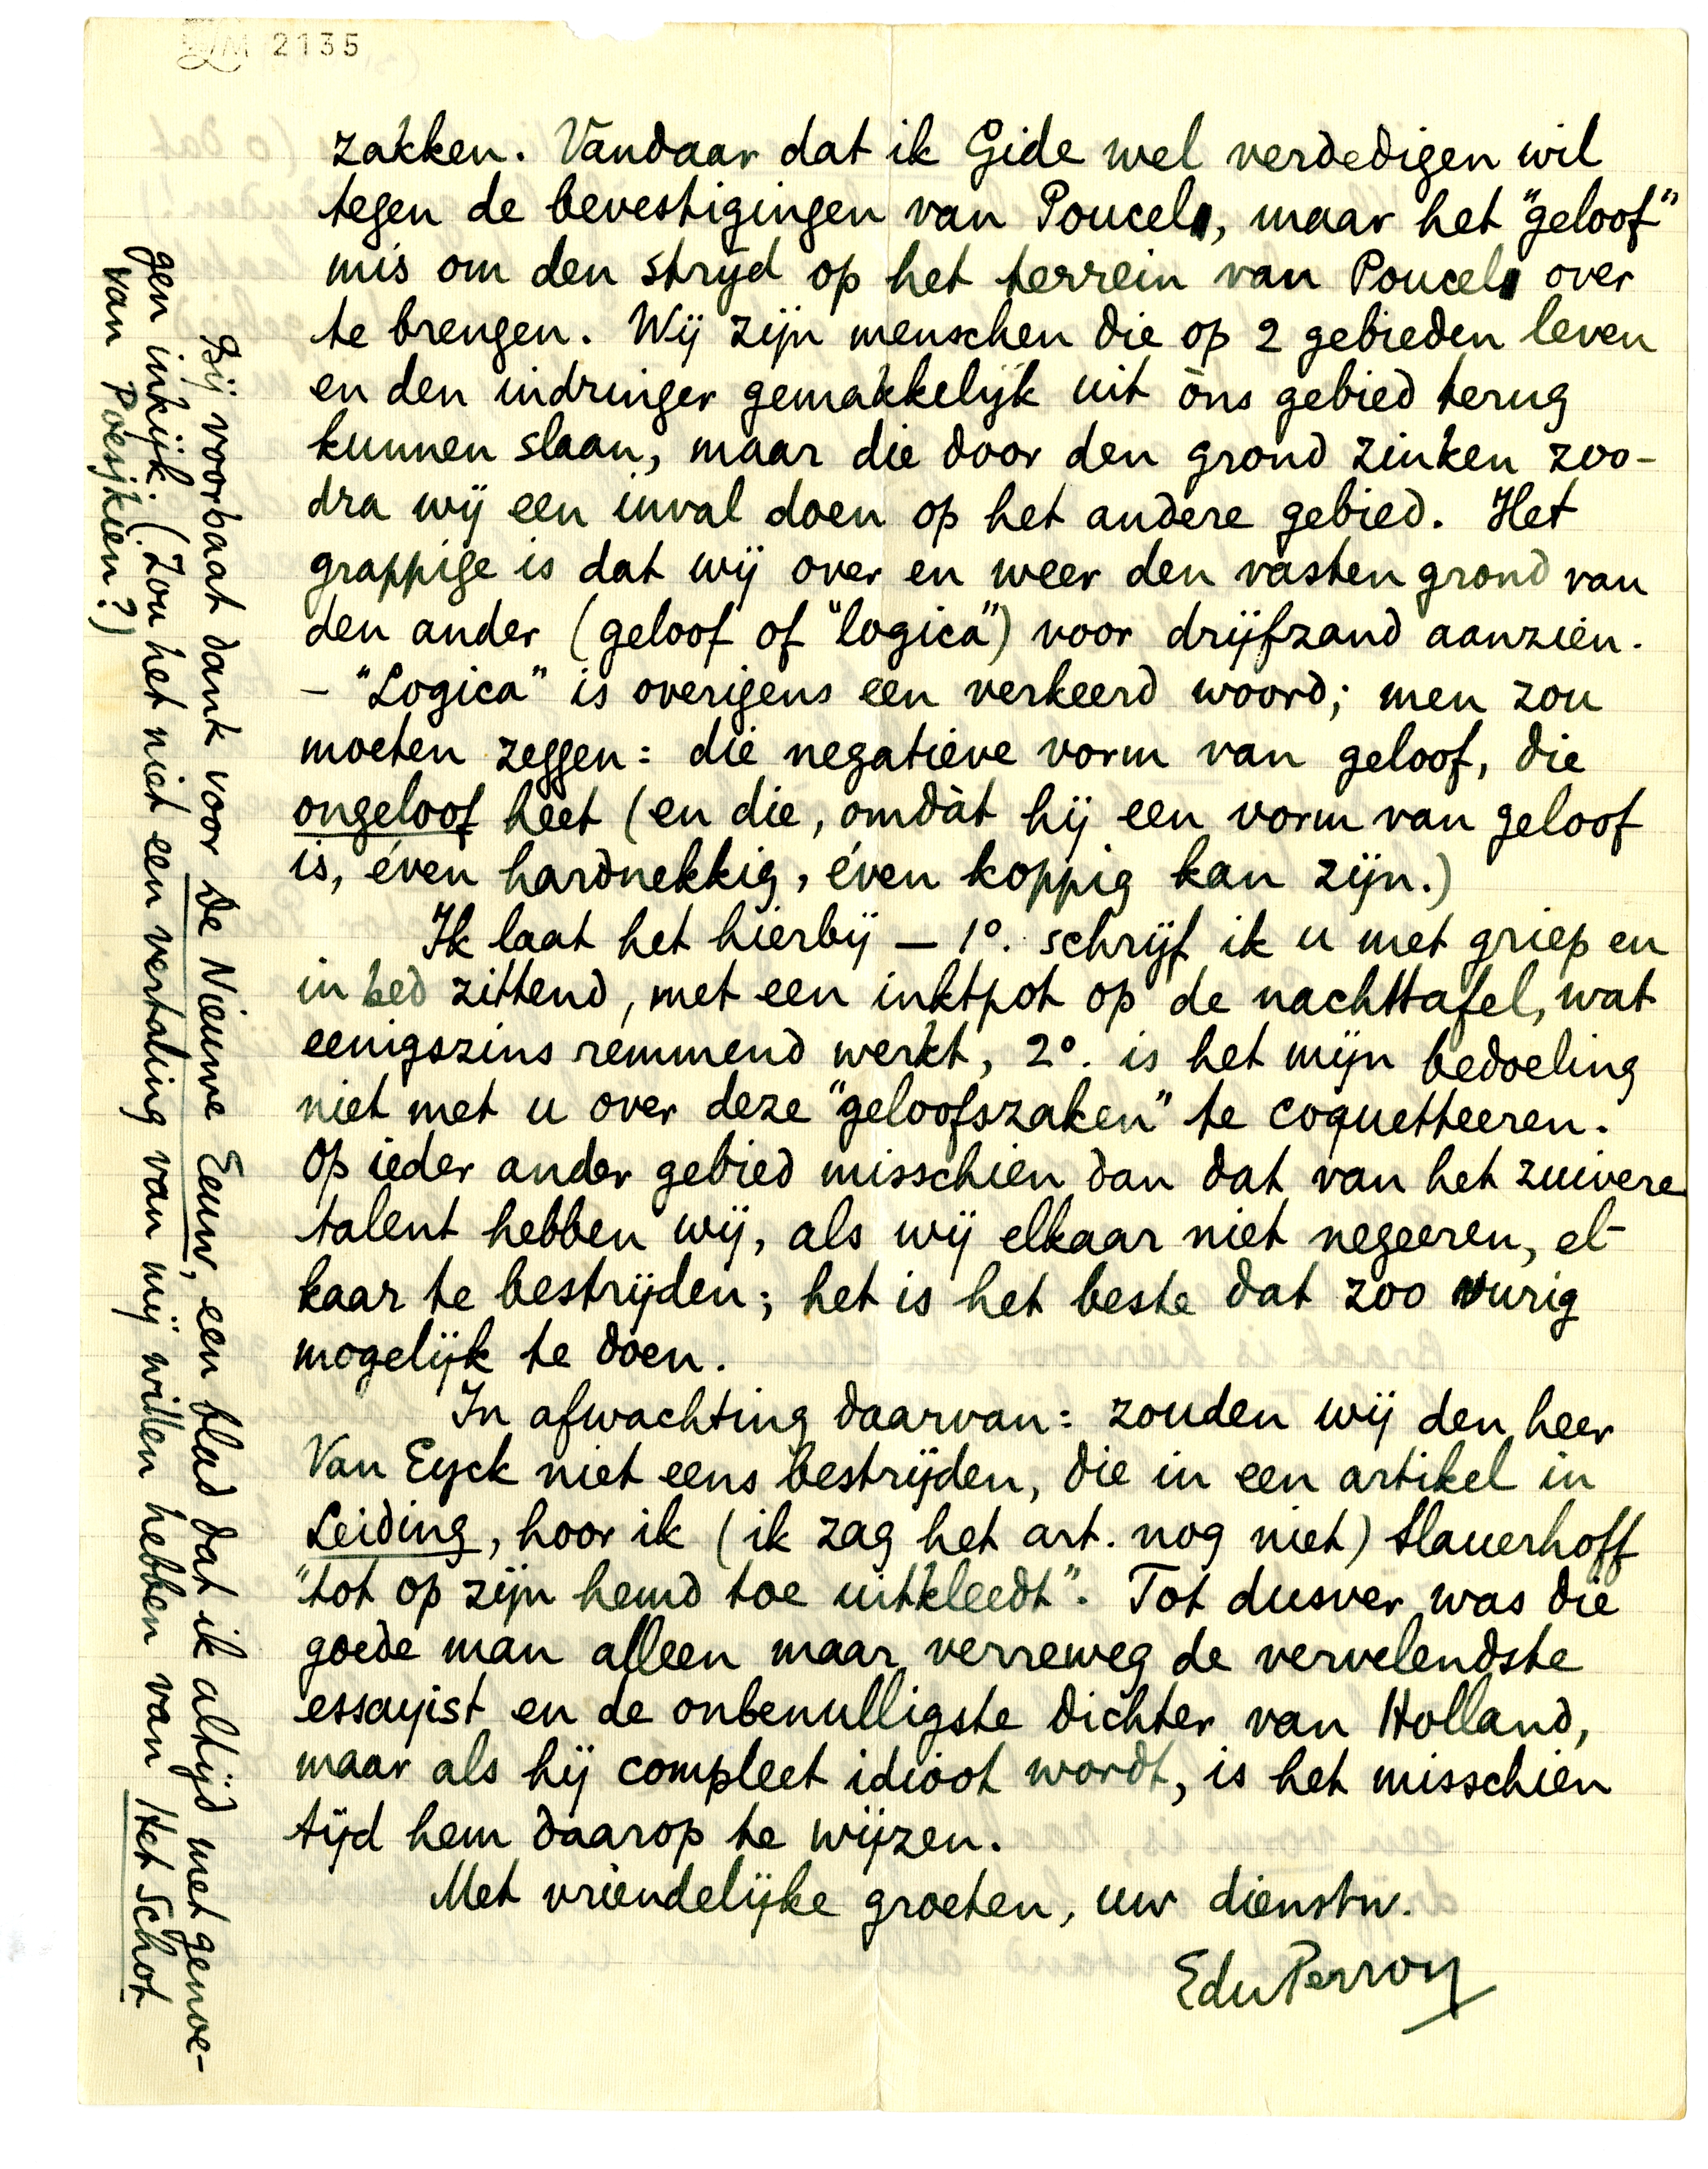 LM 2135
zakken. Vandaar dat ik Gide wel verdedigen wil
tegen de bevestigingen van Poucel, maar het "geloof"
mis om den strijd op het terrein van Poucel over
te brengen. Wij zijn menschen die op 2 gebieden leven
en den indringer gemakkelijk uit òns gebied terug
kunnen slaan, maar die door den grond zinken zoo-
dra wij een inval doen op het andere gebied. Het
grappige is dat wij over en weer den vasten grond van
den ander (geloof of "logica") voor drijfzand aanzien.
– "Logica" is overigens een verkeerd woord; men zou
moeten zeggen: die negatieve vorm van geloof, die
ongeloof heet (en die, omdàt hij een vorm van geloof
is, éven hardnekkig, éven koppig kan zijn.)
Ik laat het hierbij — 1°. schrijf ik u met griep en
in bed zittend, met een inktpot op de nachttafel, wat
eenigszins remmend werkt, 2°. is het mijn bedoeling
niet met u over deze "geloofszaken" te coquetteeren.
Op ieder ander gebied misschien dan dat van het zuivere
talent hebben wij, als wij elkaar niet negeeren, el-
kaar te bestrijden; het is het beste dat zoo vurig
mogelijk te doen.
In afwachting daarvan: zouden wij den heer
Van Eyck niet eens bestrijden, die in een artikel in
Leiding, hoor ik (ik zag het art. nog niet) Slauerhoff
"tot op zijn hemd toe uitkleedt". Tot dusver was die
goede man alleen maar verreweg de vervelendste
essayist en de onbenulligste dichter van Holland,
maar als hij compleet idioot wordt, is het misschien
tijd hem daarop te wijzen.
Met vriendelijke groeten, uw dienstw.
EduPerron
Bij voorbaat dank voor De Nieuwe Eeuw, een blad dat ik altijd met genoe-
gen inkijk. (Zou het niet een vertaling van mij willen hebben van Het Schot
van Poesjkien?)